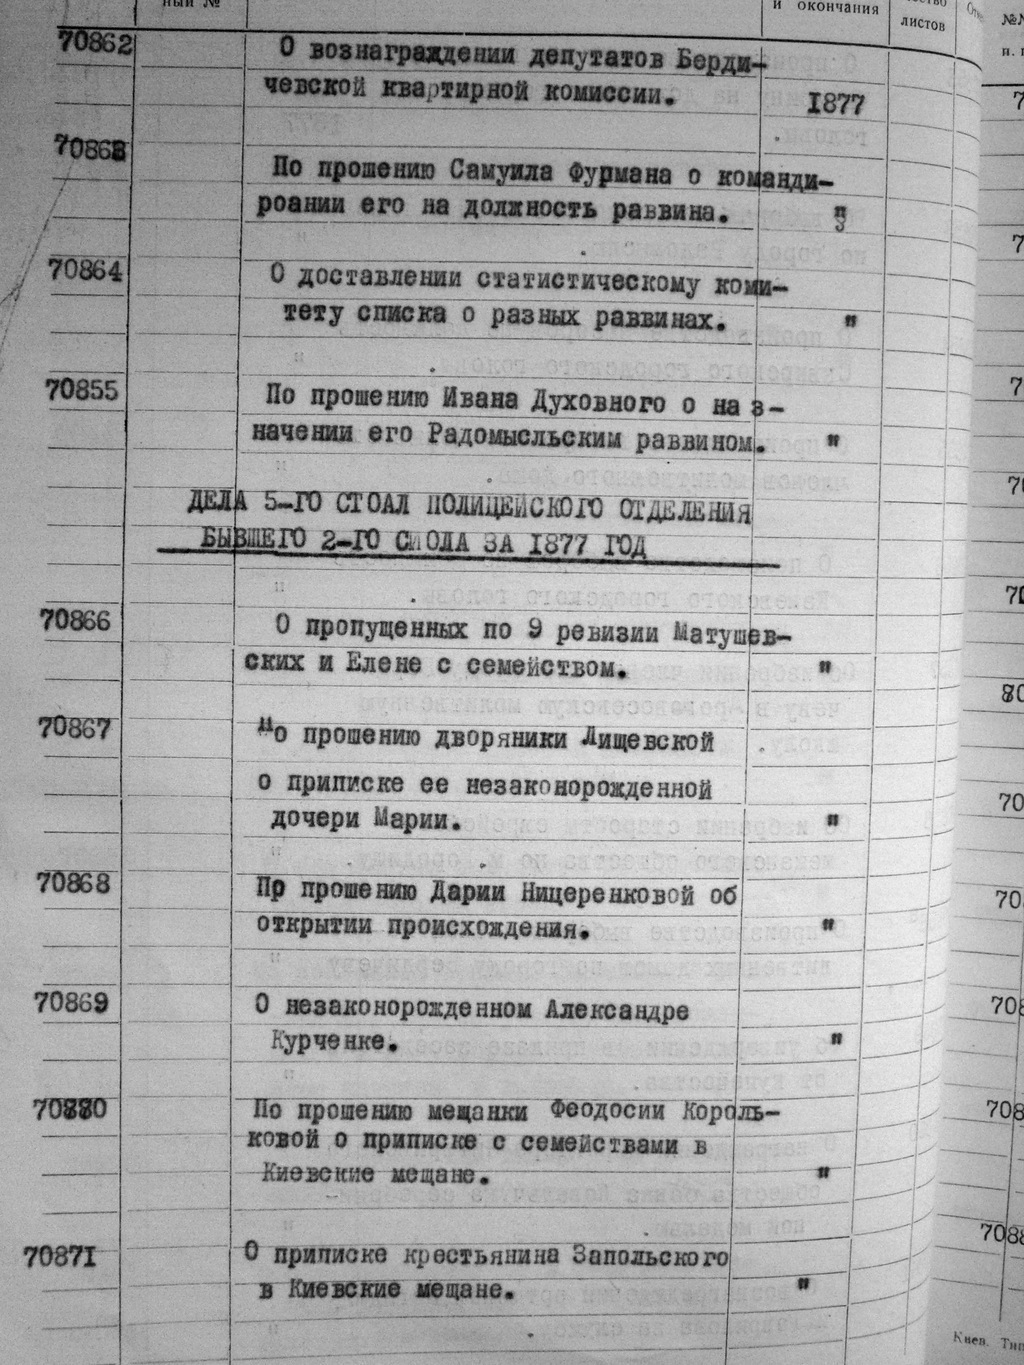 ный №
и окончания
листов
№№
70862
О вознаграждении депутатов Берди-
чевской квартирной комиссии.
1877
70863
По прошению Самуила Фурмана о команди-
роании его на должность раввина. "
70864
О доставлении статистическому коми-
тету списка о разных раввинах. "
70855
По прошению Ивана Духовного о наз-
начении его Радомысльским раввином. "
ДЕЛА 5-ГО СТОАЛ ПОЛИЦЕЙСКОГО ОТДЕЛЕНИЯ
БЫВШЕГО 2-ГО СТОЛА ЗА 1877 ГОД
70866
О пропущенных по 9 ревизии Матушев-
ских и Елене с семейством. "
70867
По прошению дворяники Лищевской
о приписке ее незаконорожденной
дочери Марии. "
70868
Пр прошению Дарии Ницеренковой об
открытии происхождения. "
70869
О незаконорожденном Александре
Курченке. "
70880
По прошению мещанки Феодосии Король-
ковой о приписке с семействами в
Киевские мещане. "
70871
О приписке крестьянина Запольского
в Киевские мещане. "
Киев.